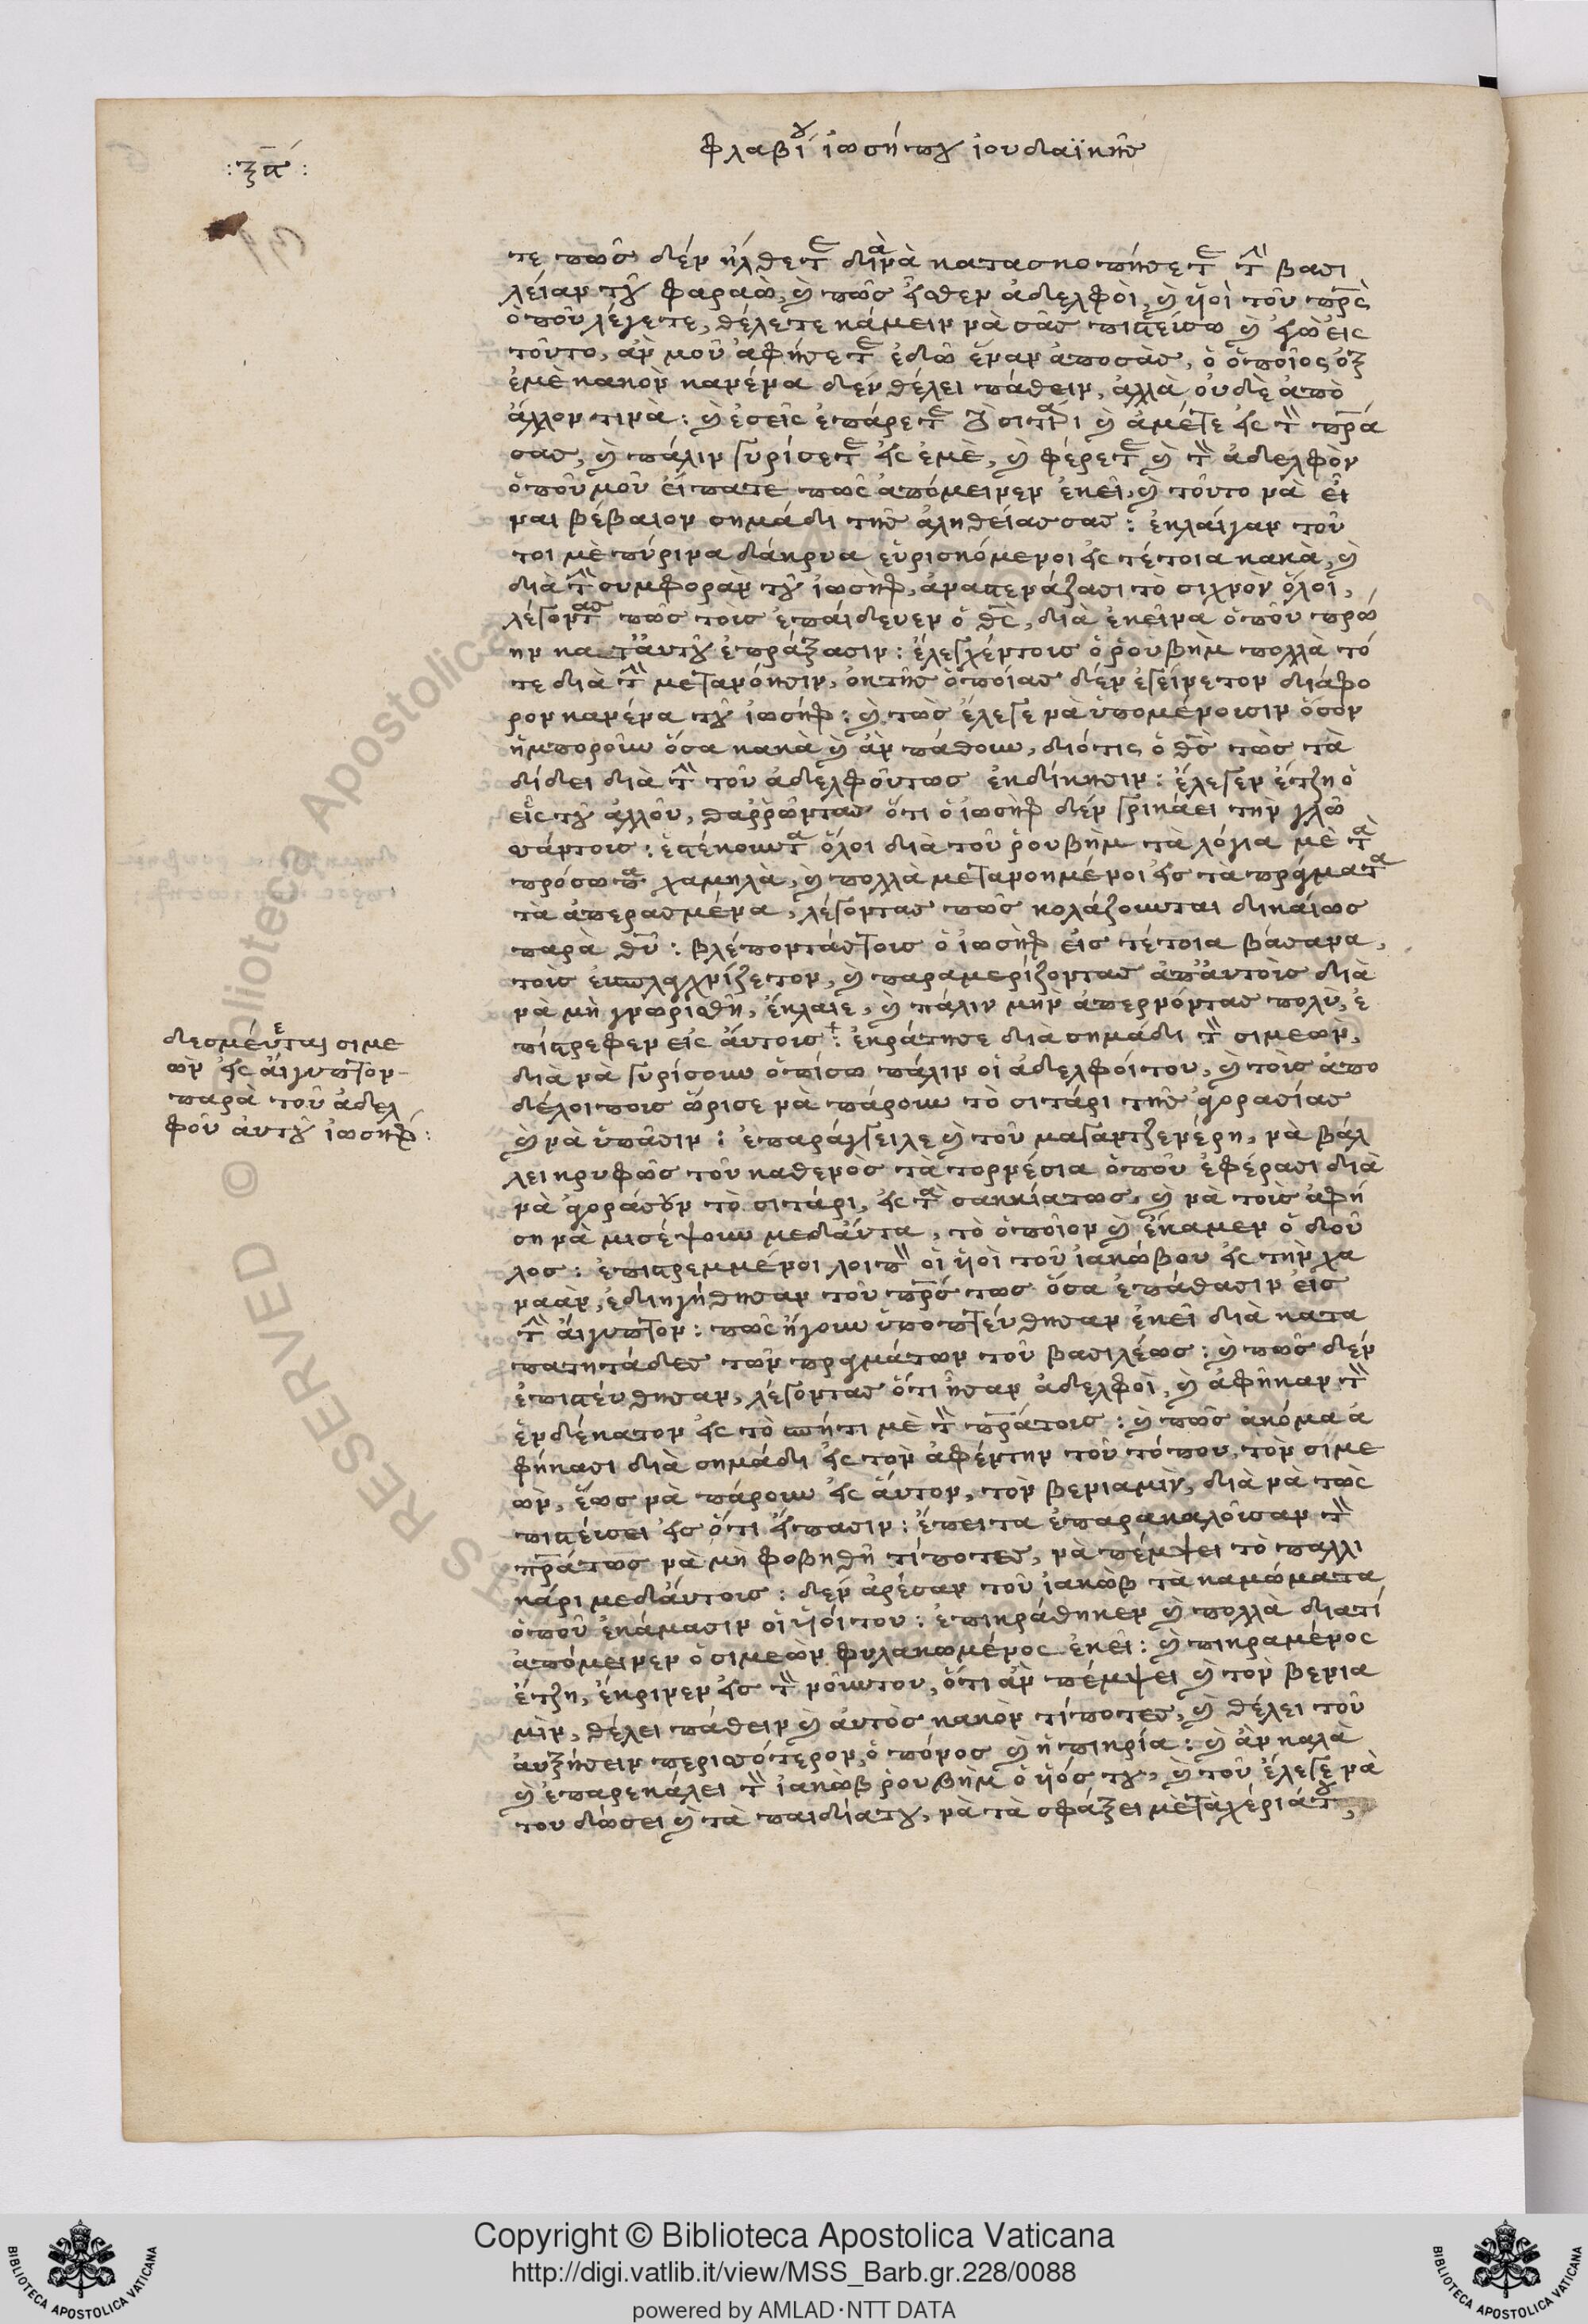 φλαβίου ἰωσήπου ἰουδαϊκῆς
τε πῶς δέν ἤλθετε διὰ νὰ κατασκοπήσετε τὴν βασι
λείαν τοῦ φαραὼ, καὶ πῶς ἔσθεν ἀδελφοὶ, καὶ ὑιοὶ τοῦ πρς
ὁποῦ λέγετε, θέλετε κάμειν νὰ σᾶς πιστεύσω καὶ ἐγὼ εἰς
τοῦτο, ἂν μοῦ ἀφήσετε ἐδῶ ἕναν ἀποσὰς, ὁ ὁποῖος ἐξ
ἐμὲ κακὸν κανένα δὲν θέλει πάθειν, ἀλλὰ οὐδὲ ἀπὸ
ἄλλον τινὰ: καὶ ἐσεῖς ἐπάρετε τὸ σιτάρι καὶ ἀμέτε εἰς τὸν πρά
σας, καὶ πάλιν γυρίσετε εἰς ἐμὲ, καὶ φέρετε καὶ τὸν ἀδελφὸν
ὁποῦ μοῦ εἴπατε πῶς ἀπόμεινεν ἐκεῖ, καὶ τοῦτο νὰ εἶ
ναι βέβαιον σημάδι τῆς ἀληθείας σας: ἐκλαίγαν τοῦ
τοι μὲ πύρινα δάκρυα εὑρισκόμενοι εἰς τέτοια κακὰ, καὶ
διὰ τὴν συμφορὰν τοῦ ἰωσὴφ, ἀναστενάζασι τὸ συχνὸν ὅλοι,
λέγοντας πῶς τοὶς ἐπαίδευεν ὁ θς, διὰ ἐκεῖνα ὁποῦ πρώ
ην κατ᾽ αὐτοῦ ἐπράξασιν: ἐλεγχέντοις ὁ ῥουβὴμ πολλὰ τό
τε διὰ τὴν μετανόησιν, ἐκ τῆς ὁποίας δὲν ἐγείρετον διάφο
ρον κανένα τοῦ ἰωσήφ: καὶ τὼς ἔλεγε νὰ ὑπομένοισιν ὅσον
ἠμποροῦν ὅσα κακὰ καὶ ἂν πάθουν, διότις ὁ θς τὼς τὰ
δίδει διὰ τὴν τοῦ ἀδελφοῦντως ἐκδίκησιν: ἔλεγεν ἔτζη ὁ
εἷς τοῦ ἀλλοῦ, θαῤῥῶντας ὅτι ὁ ἰωσὴφ δὲν γρικάει τὴν γλῶ
σάντοις: ἐστέκουντα ὅλοι διὰ τοῦ ῥουβὴμ τὰ λόγια μὲ τὰ
πρόσωπα χαμηλὰ, καὶ πολλὰ μετανοημένοι εἰς τὰ πράγματα
τὰ ἀπερασμένα, λέγοντας πῶς κολάζουνται δικαίως
παρὰ θῦ: βλέποντάςτοις ὁ ἰωσὴφ εἰς τέτοια βάσανα,
τοὶς ἐσπλαχνίζετον, καὶ παραμερίζοντας ἀπ᾽ αὐτοὶς διὰ
νὰ μὴ γνωρισθῆ, ἔκλαιε, καὶ πάλιν μὴν ἀπερνόντας πολὺ, ἐ
πίστρεφεν εἰς αὐτοις: ἐκράτησε διὰ σημάδι τὸν σιμεὼν,
διὰ νὰ γυρίσουν ὀπίσω πάλιν οἱ ἀδελφοί του, καὶ τοὶς ἀπο
δέλοιποις ὥρισε νὰ πάρουν τὸ σιτάρι τῆς ἀγορασίας
καὶ νὰ ὑπᾶσιν: ἐπαράγγειλε καὶ τοῦ μαγαντζενέρη, νὰ βάλ
λει κρυφῶς τοῦ καθενὸς τὰ τορνέσια ὁποῦ ἐφέρασι διὰ
νὰ ἀγοράσουν τὸ σιτάρι, εἰς τὰ σακκίατως, καὶ νὰ τοὶς ἀφή
ση νὰ μισέψουν μεδαύτα, τὸ ὁποῖον καὶ ἔκαμεν ὁ δοῦ
λος: ἐπιστρεμμένοι λοιπὸν οἱ ὑιοὶ τοῦ ἰακώβου εἰς τὴν χα
ναὰν, ἐδιηγήθησαν τοῦ πρς τως ὅσα ἐπάθασιν εἰς
τὴν αἴγυπτον: πῶς ἤγουν ὑποπτεύθησαν ἐκεῖ διὰ κατα
πατητάδες τῶν πραγμάτων τοῦ βασιλέως: καὶ πῶς δὲν
ἐπιστεύθησαν, λέγοντας ὅτι ἦσαν ἀδελφοὶ, καὶ ἀφῆκαν τὸν
ἑνδέκατον εἰς τὸ σπήτι μὲ τὸν πράτοις: καὶ πῶς ἀκόμα ἀ
φήκασι διὰ σημάδι εἰς τὸν ἀφέντην τοῦ τόπου, τὸν σιμε
ὼν, ἕως νὰ πάρουν εἰς αὔτον, τὸν βενιαμὶν, διὰ νὰ τὼς
πιστεύσει εἰς ὅτι εἴπασιν: ἔπειτα ἐπαρακαλοῦσαν τὸν
πράτως νὰ μὴ φοβηθῆ τίποτες, νὰ πέμψει τὸ παλλι
κάρι μεδαύτοις: δὲν ἀρέσαν τοῦ ἰακὼβ τὰ καμώματα
ὁποῦ ἐκάμασιν οἱ ὑιοί του: ἐπικράθηκεν καὶ πολλὰ διατί
ἀπόμεινεν ὁ σιμεὼν φυλακωμένος ἐκεῖ: καὶ πικραμένος
ἔτζη, ἔκρινεν εἰς τὸν νοῦντου, ὅτι ἂν πέμψει καὶ τὸν βενια
μὶν, θέλει πάθειν καὶ αὐτὸς κακὸν τίποτες, καὶ θέλει τοῦ
αὐξήσειν περισσότερον, ὁ πόνος καὶ ἡ πικρία: καὶ ἂν καλὰ
καὶ ἐπαρεκάλει τὸν ἰακὼβ ῥουβὴμ ὁ ὑιός του, καὶ τοῦ ἔλεγε νὰ
του δώσει καὶ τὰ παιδίατου, νὰ τὰ σφάξει μὲ τὰ χέριάτου,
δεσμεύεται σιμε
ὼν εἰς αἴγυπτον
παρὰ τοῦ ἀδελ
φοῦ αὐτοῦ ἰωσὴφ:
Copyright © Biblioteca Apostolica Vaticana
http://digi.vatlib.it/view/MSS_Barb.gr.228/0088
powered by AMLAD·NTT DATA
BIBLIOTECA APOSTOLICA VATICANA
BIBLIOTECA APOSTOLICA VATICANA